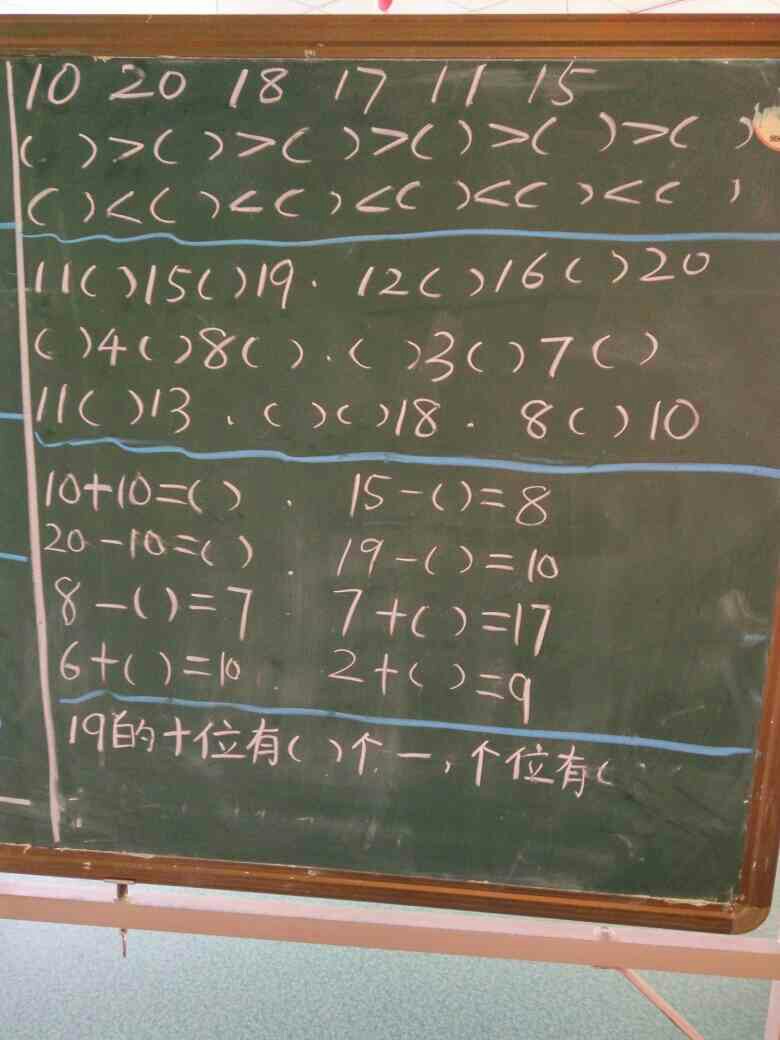 10 20 18 17 11 15
( )>( )>( )>( )>( )>( )
( )<( )<( )<( )<( )<( )
11( )15( )19. 12( )16( )20
( )4( )8( ). ( )3( )7( )
11( )13. ( )( )18. 8( )10
10+10=( ). 15-( )=8
20-10=( ). 19-( )=10
8-( )=7. 7+( )=17
6+( )=10. 2+( )=9
19的十位有( )个一,个位有(